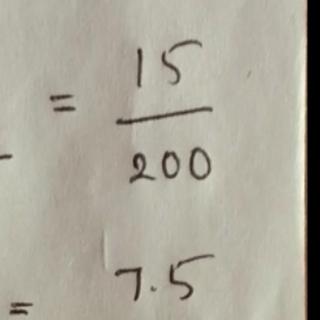 = 15
200
= 7.5